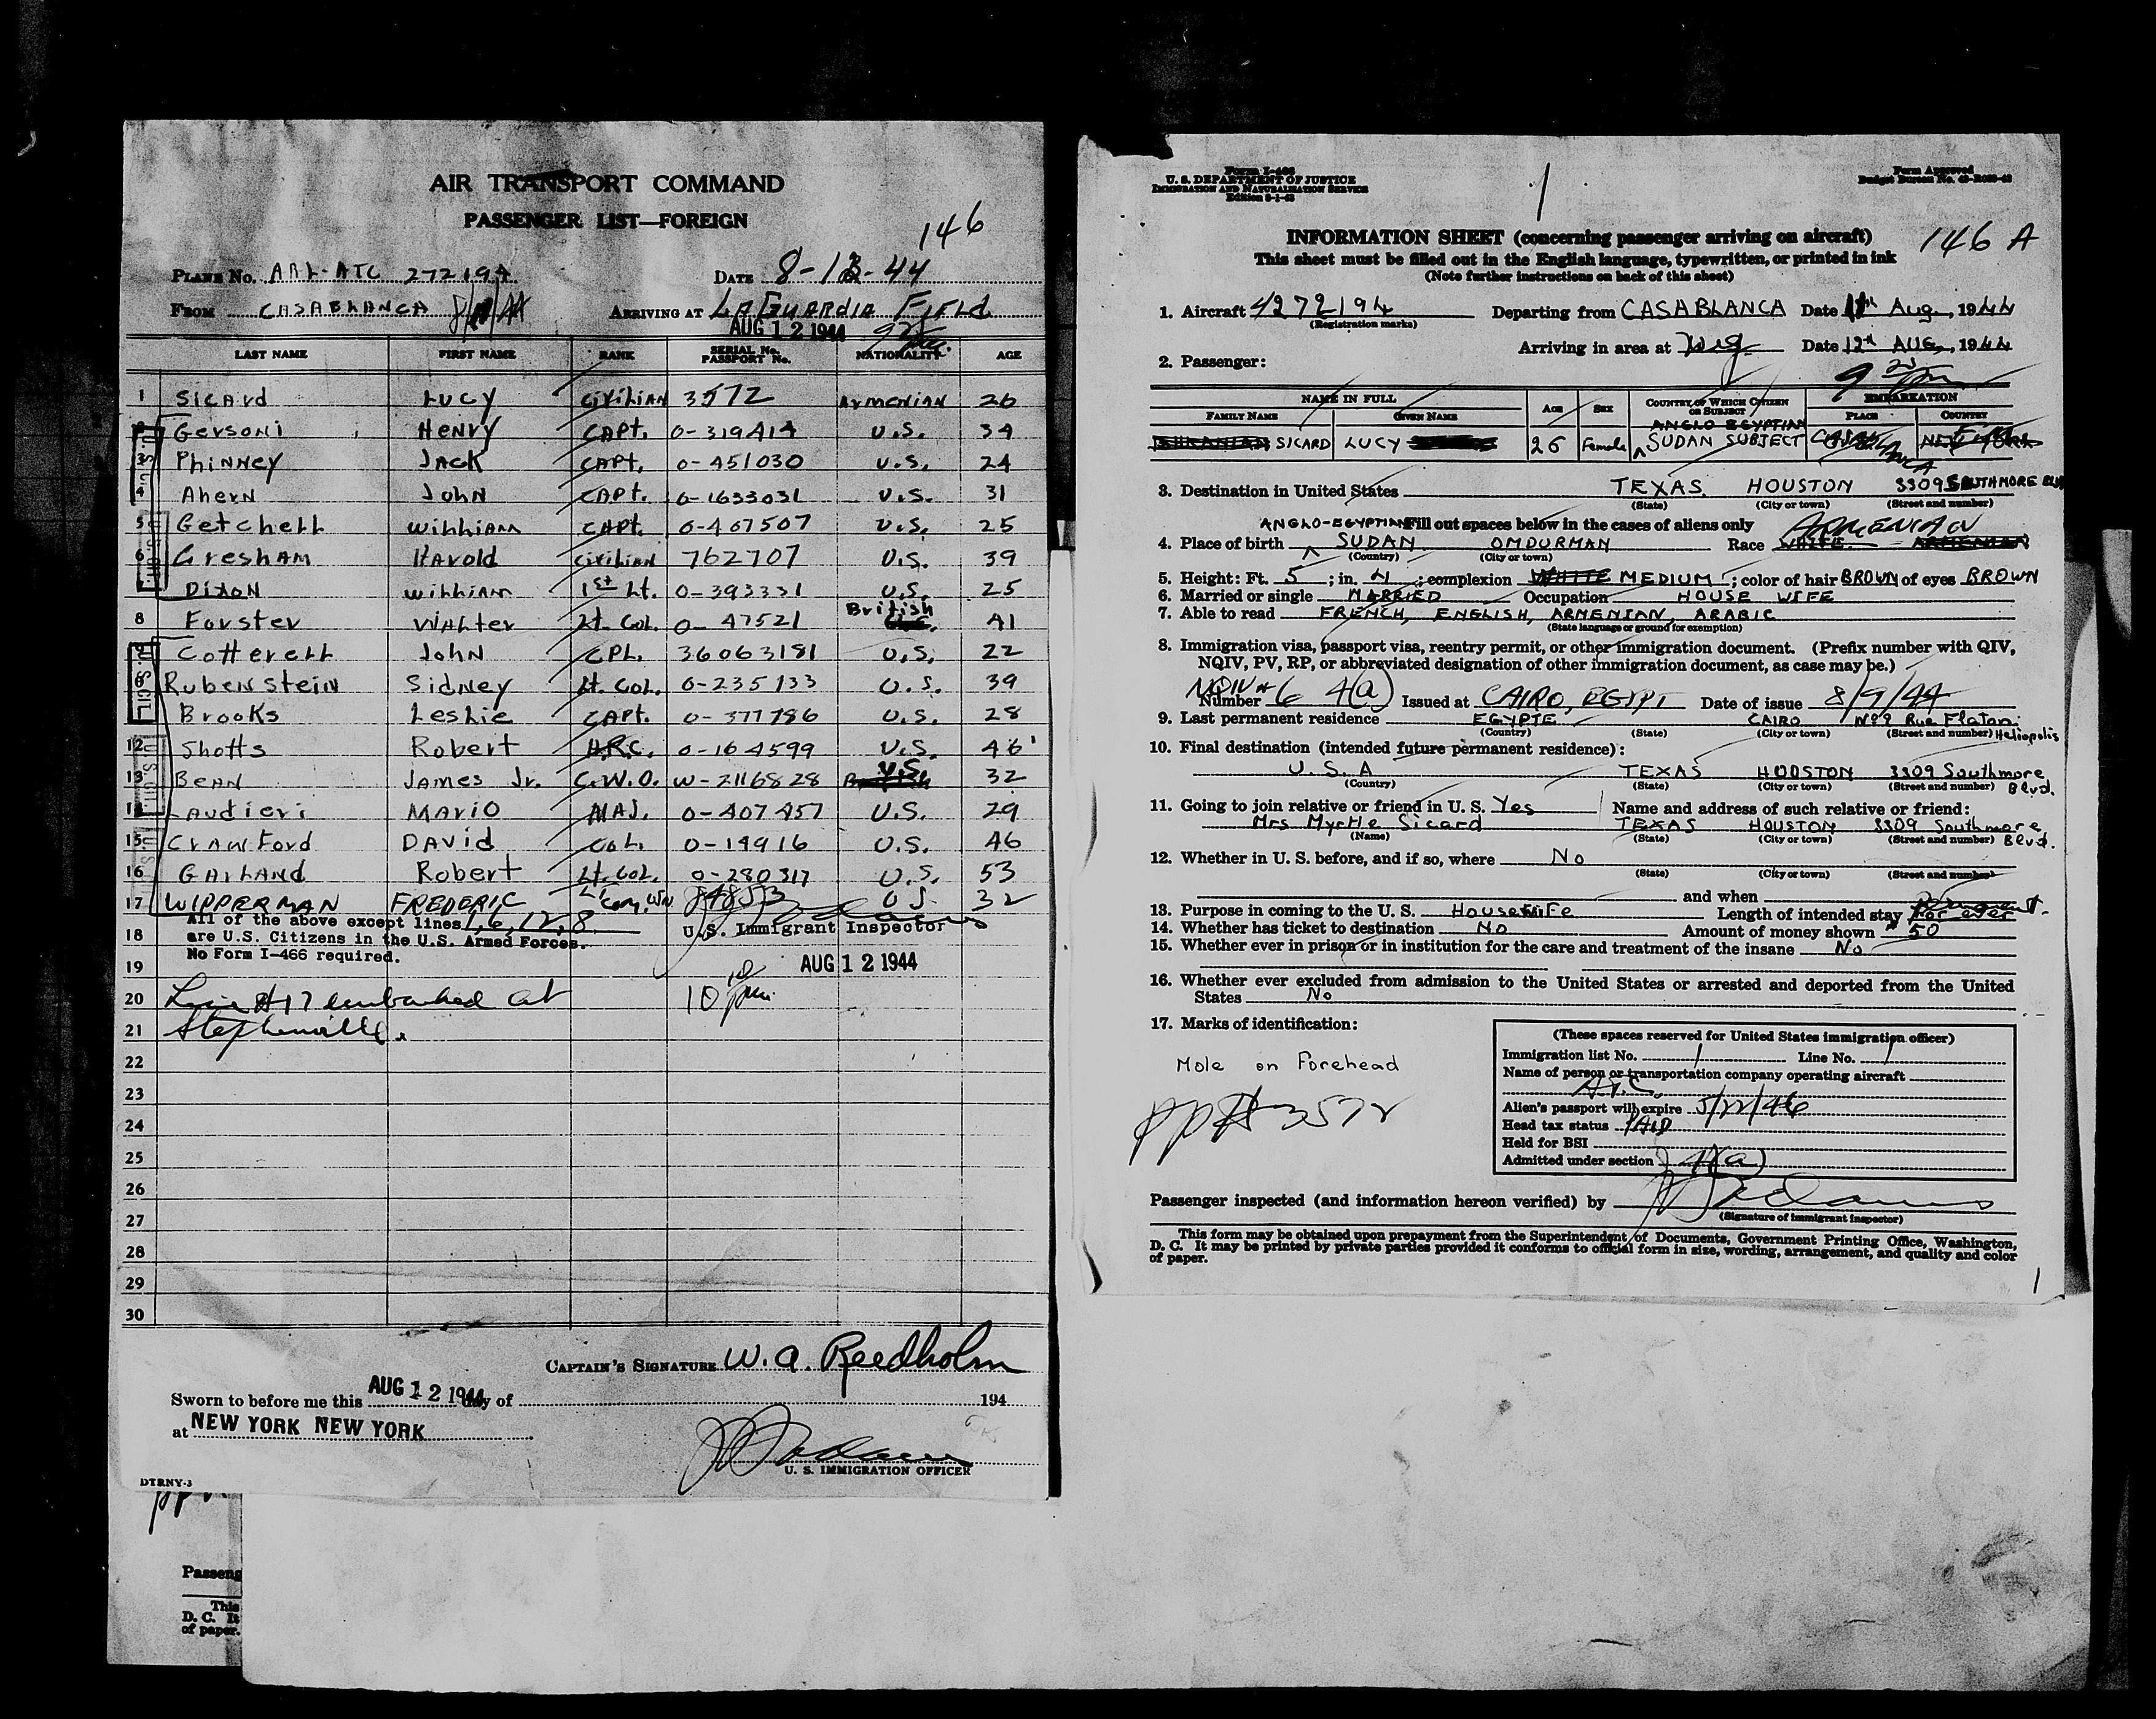 AIR TRANSPORT COMMAND
PASSENGER LIST—FOREIGN
146
PLANE No. AAL-ATC 272194 DATE 8-12-44
FROM CASABLANCA ARRIVING AT LaGuardia Field
AUG 12 1944
LAST NAME FIRST NAME RANK SERIAL No. PASSPORT No. NATIONALITY AGE
1 Sicard Lucy Civilian 3572 Armenian 26
2 Gersoni Henry CAPT. O-319414 U.S. 34
3 Phinney Jack CAPT. O-451030 U.S. 24
4 Ahern John CAPT. O-1633031 U.S. 31
5 Getchell William CAPT. O-407507 U.S. 25
6 Gresham Harold Civilian 762707 U.S. 39
7 Dixon William 1st Lt. O-393331 U.S. 25
8 Forster Walter Lt. Col. O-47521 British 41
9 Cotterell John CPL. 36063181 U.S. 22
10 Rubenstein Sidney Lt. Col. O-235133 U.S. 39
11 Brooks Leslie CAPT. O-377786 U.S. 28
12 Shotts Robert A.R.C. O-164599 U.S. 46
13 Bean James Jr. C.W.O. W-2116828 U.S. 32
14 Laudieri Mario MAJ. O-407457 U.S. 29
15 Crawford David Col. O-14916 U.S. 46
16 Garland Robert Lt. Col. O-280317 U.S. 53
17 WIPPERMAN FREDERIC Lt Com. USN 84853 U S. 32
All of the above except lines 1, 6, 12, 8
18 are U.S. Citizens in the U.S. Armed Forces. U.S. Immigrant Inspector
No Form I-466 required.
19 AUG 12 1944
20 Line #17 embarked at 10 pm
21 Stephenville.
22
23
24
25
26
27
28
29
30
CAPTAIN'S SIGNATURE W. A. Reedholm
Sworn to before me this AUG 12 1944 day of 194
at NEW YORK NEW YORK
U. S. IMMIGRATION OFFICER
DTRNY-3
Passeng
This
D. C. It
of paper.
Form I-466
U. S. DEPARTMENT OF JUSTICE
IMMIGRATION AND NATURALIZATION SERVICE
Edition 8-1-43
1
Form Approved
Budget Bureau No. 43-R088-42
INFORMATION SHEET (concerning passenger arriving on aircraft) 146 A
This sheet must be filled out in the English language, typewritten, or printed in ink
(Note further instructions on back of this sheet)
1. Aircraft 4272194 Departing from CASABLANCA Date 11th Aug, 1944
(Registration marks)
Arriving in area at Date 12th AUG, 1944
2. Passenger:
NAME IN FULL AGE SEX COUNTRY OF WHICH CITIZEN OR SUBJECT EMBARKATION
FAMILY NAME GIVEN NAME PLACE COUNTRY
ANGLO EGYPTIAN
SICARD LUCY 26 Female SUDAN SUBJECT
3. Destination in United States TEXAS HOUSTON 3309 SOUTHMORE BLVD
(State) (City or town) (Street and number)
ANGLO-EGYPTIAN Fill out spaces below in the cases of aliens only ARMENIAN
4. Place of birth SUDAN OMDURMAN Race WHITE ARMENIAN
(Country) (City or town)
5. Height: Ft. 5; in. 4; complexion WHITE MEDIUM; color of hair BROWN of eyes BROWN
6. Married or single MARRIED Occupation HOUSE WIFE
7. Able to read FRENCH, ENGLISH, ARMENIAN, ARABIC
(State language or ground for exemption)
8. Immigration visa, passport visa, reentry permit, or other immigration document. (Prefix number with QIV,
NQIV, PV, RP, or abbreviated designation of other immigration document, as case may be.)
NQIV #
Number 6 4(a) Issued at CAIRO, EGYPT Date of issue 8/9/44
9. Last permanent residence EGYPTE CAIRO Nº9 Rue Flaton Heliopolis
(Country) (State) (City or town) (Street and number)
10. Final destination (intended future permanent residence):
U.S.A TEXAS HOUSTON 3309 Southmore Blvd.
(Country) (State) (City or town) (Street and number)
11. Going to join relative or friend in U. S. Yes Name and address of such relative or friend:
Mrs Myrtle Sicard TEXAS HOUSTON 3309 Southmore Blvd.
(Name) (State) (City or town) (Street and number)
12. Whether in U. S. before, and if so, where No
(State) (City or town) (Street and number)
and when
13. Purpose in coming to the U. S. Housewife Length of intended stay Permanent. For ever
14. Whether has ticket to destination No Amount of money shown $50
15. Whether ever in prison or in institution for the care and treatment of the insane No
16. Whether ever excluded from admission to the United States or arrested and deported from the United
States No
17. Marks of identification:
Mole on Forehead
PP# 3572
(These spaces reserved for United States immigration officer)
Immigration list No. 1 Line No. 1
Name of person or transportation company operating aircraft
ATC
Alien's passport will expire 5/22/46
Head tax status PAID
Held for BSI
Admitted under section 4(a)
Passenger inspected (and information hereon verified) by
(Signature of immigrant inspector)
This form may be obtained upon prepayment from the Superintendent of Documents, Government Printing Office, Washington,
D. C. It may be printed by private parties provided it conforms to official form in size, wording, arrangement, and quality and color
of paper.
1